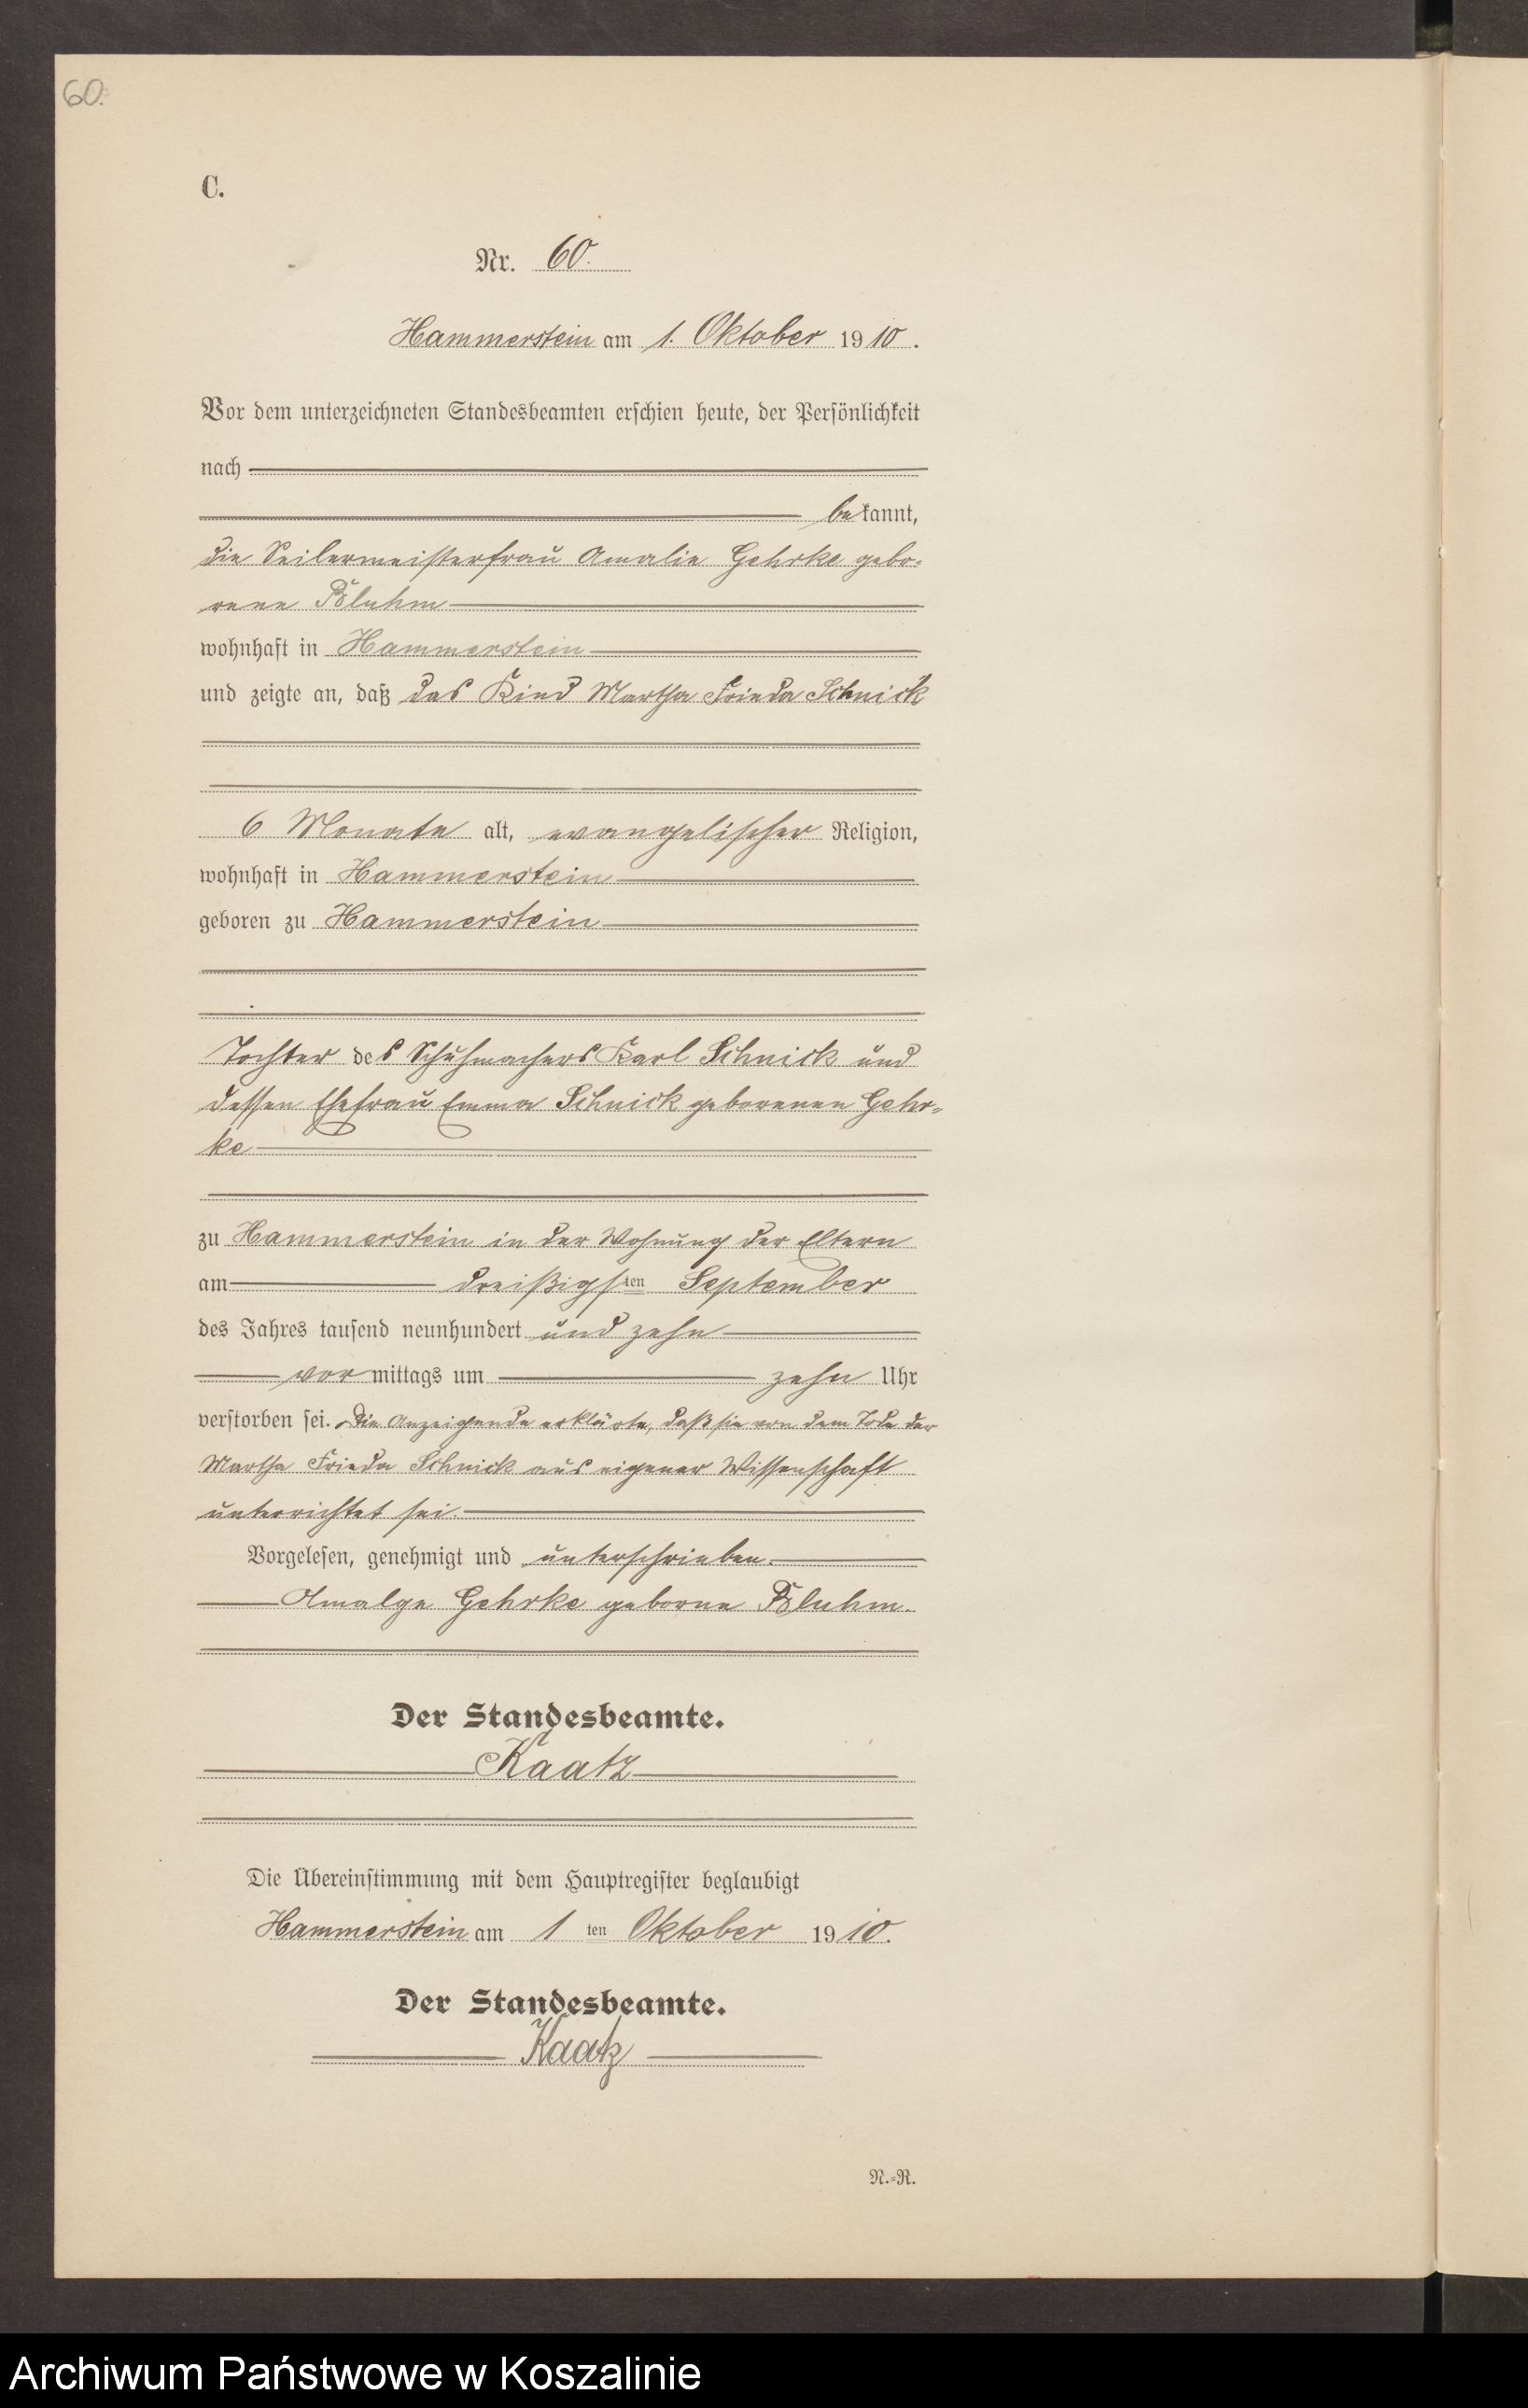 60.
C.
Nr. 60.
Hammerstein am 1. Oktober 1910.
Vor dem unterzeichneten Standesbeamten erschien heute, der Persönlichkeit
nach
bekannt,
die Seilermeisterfrau Amalie Gehrke gebo-
rene Bluhm
wohnhaft in Hammerstein
und zeigte an, daß das Kind Martha Frieda Schnick
6 Monate alt, evangelischer Religion,
wohnhaft in Hammerstein
geboren zu Hammerstein
Tochter des Schuhmachers Karl Schnick und
dessen Ehefrau Emma Schnick geborenen Gehr-
ke
zu Hammerstein in der Wohnung der Eltern
am dreißigsten September
des Jahres tausend neunhundert und zehn
vormittags um zehn Uhr
verstorben sei. Die Anzeigende erklärte, daß sie von dem Tode der
Martha Frieda Schnick aus eigener Wissenschaft
unterrichtet sei.
Vorgelesen, genehmigt und unterschrieben.
Amalge Gehrke geborne Bluhm.
Der Standesbeamte.
Kaatz
Die Übereinstimmung mit dem Hauptregister beglaubigt
Hammerstein am 1 ten Oktober 1910.
Der Standesbeamte.
Kaatz
N.-R.
Archiwum Państwowe w Koszalinie